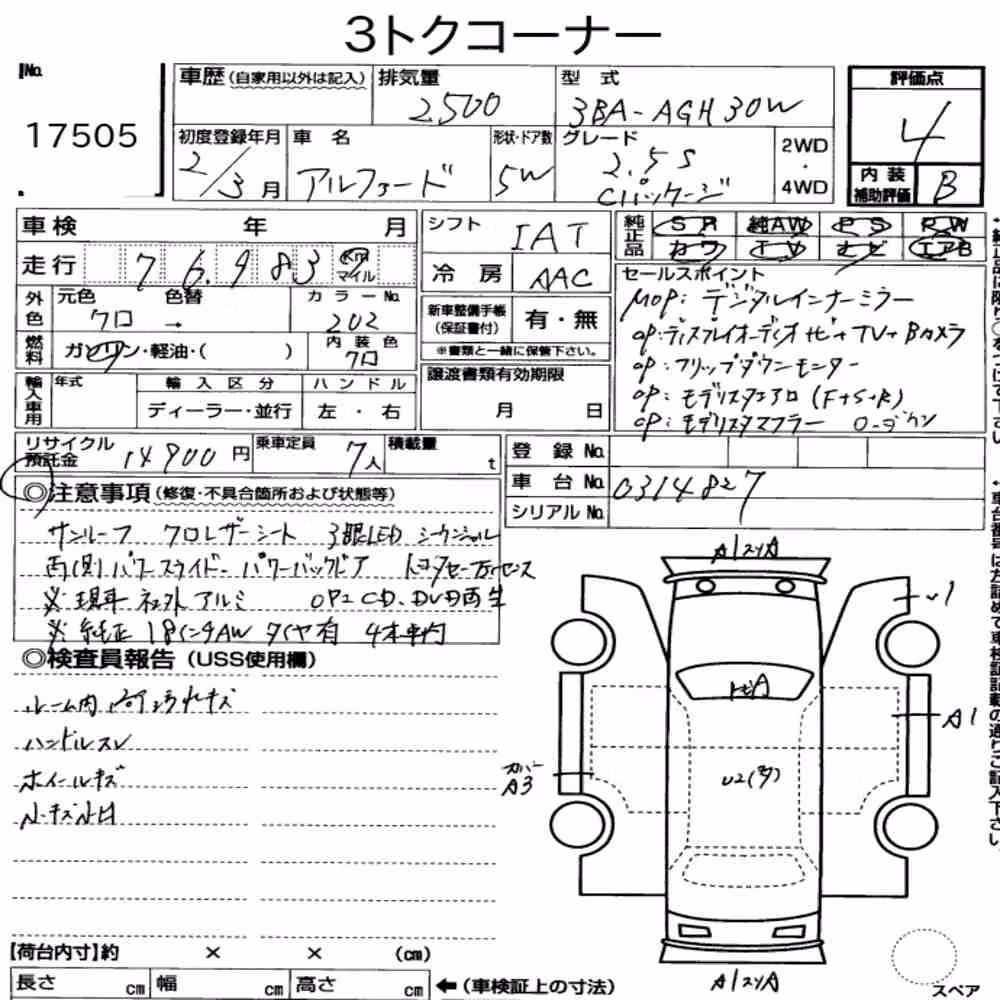 3トクコーナー
No.
17505
車歴(自家用以外は記入)
排気量
2500
型式
3BA-AGH30W
評価点
4
初度登録年月
2/3月
車名
アルファード
形状・ドア数
5W
グレード
2.5S
Cパッケージ
2WD
・
4WD
内装
補助評価
B
車検 年 月
走行 76,983 km
マイル
シフト IAT
冷房 AAC
純正品 SR 純AW PS PW
カワ TV ナビ エアB
セールスポイント
MOP: デジタルインナーミラー
OP: ディスプレイオーディオ ナビ+TV+Bカメラ
OP: フリップダウンモニター
OP: モデリスタエアロ (F+S+R)
OP: モデリスタマフラー ローダウン
外色 元色 色替 カラーNo.
クロ → 202
燃料 ガソリン・軽油・( )
内装色
クロ
新車整備手帳
(保証書付)
有・無
※書類と一緒に保管下さい。
輸入車用 年式 輸入区分 ハンドル
ディーラー・並行 左・右
譲渡書類有効期限
月 日
リサイクル
預託金 14900円
乗車定員 7人
積載量 t
登録No.
車台No. 0314827
シリアルNo.
◎注意事項(修復・不具合箇所および状態等)
サンルーフ クロレザーシート 3眼LED シーケンシャル
両側パワースライド パワーバックドア トヨタセーフティセンス
※現車 社外アルミ OP=CD、DVD再生
※純正18インチAW タイヤ有 4本車内
◎検査員報告(USS使用欄)
ハンドルスレ
ホイールキズ
A1
カバー
A3
U2(多)
【荷台内寸】約 × × (cm)
長さ cm 幅 cm 高さ cm ←(車検証上の寸法)
スペア